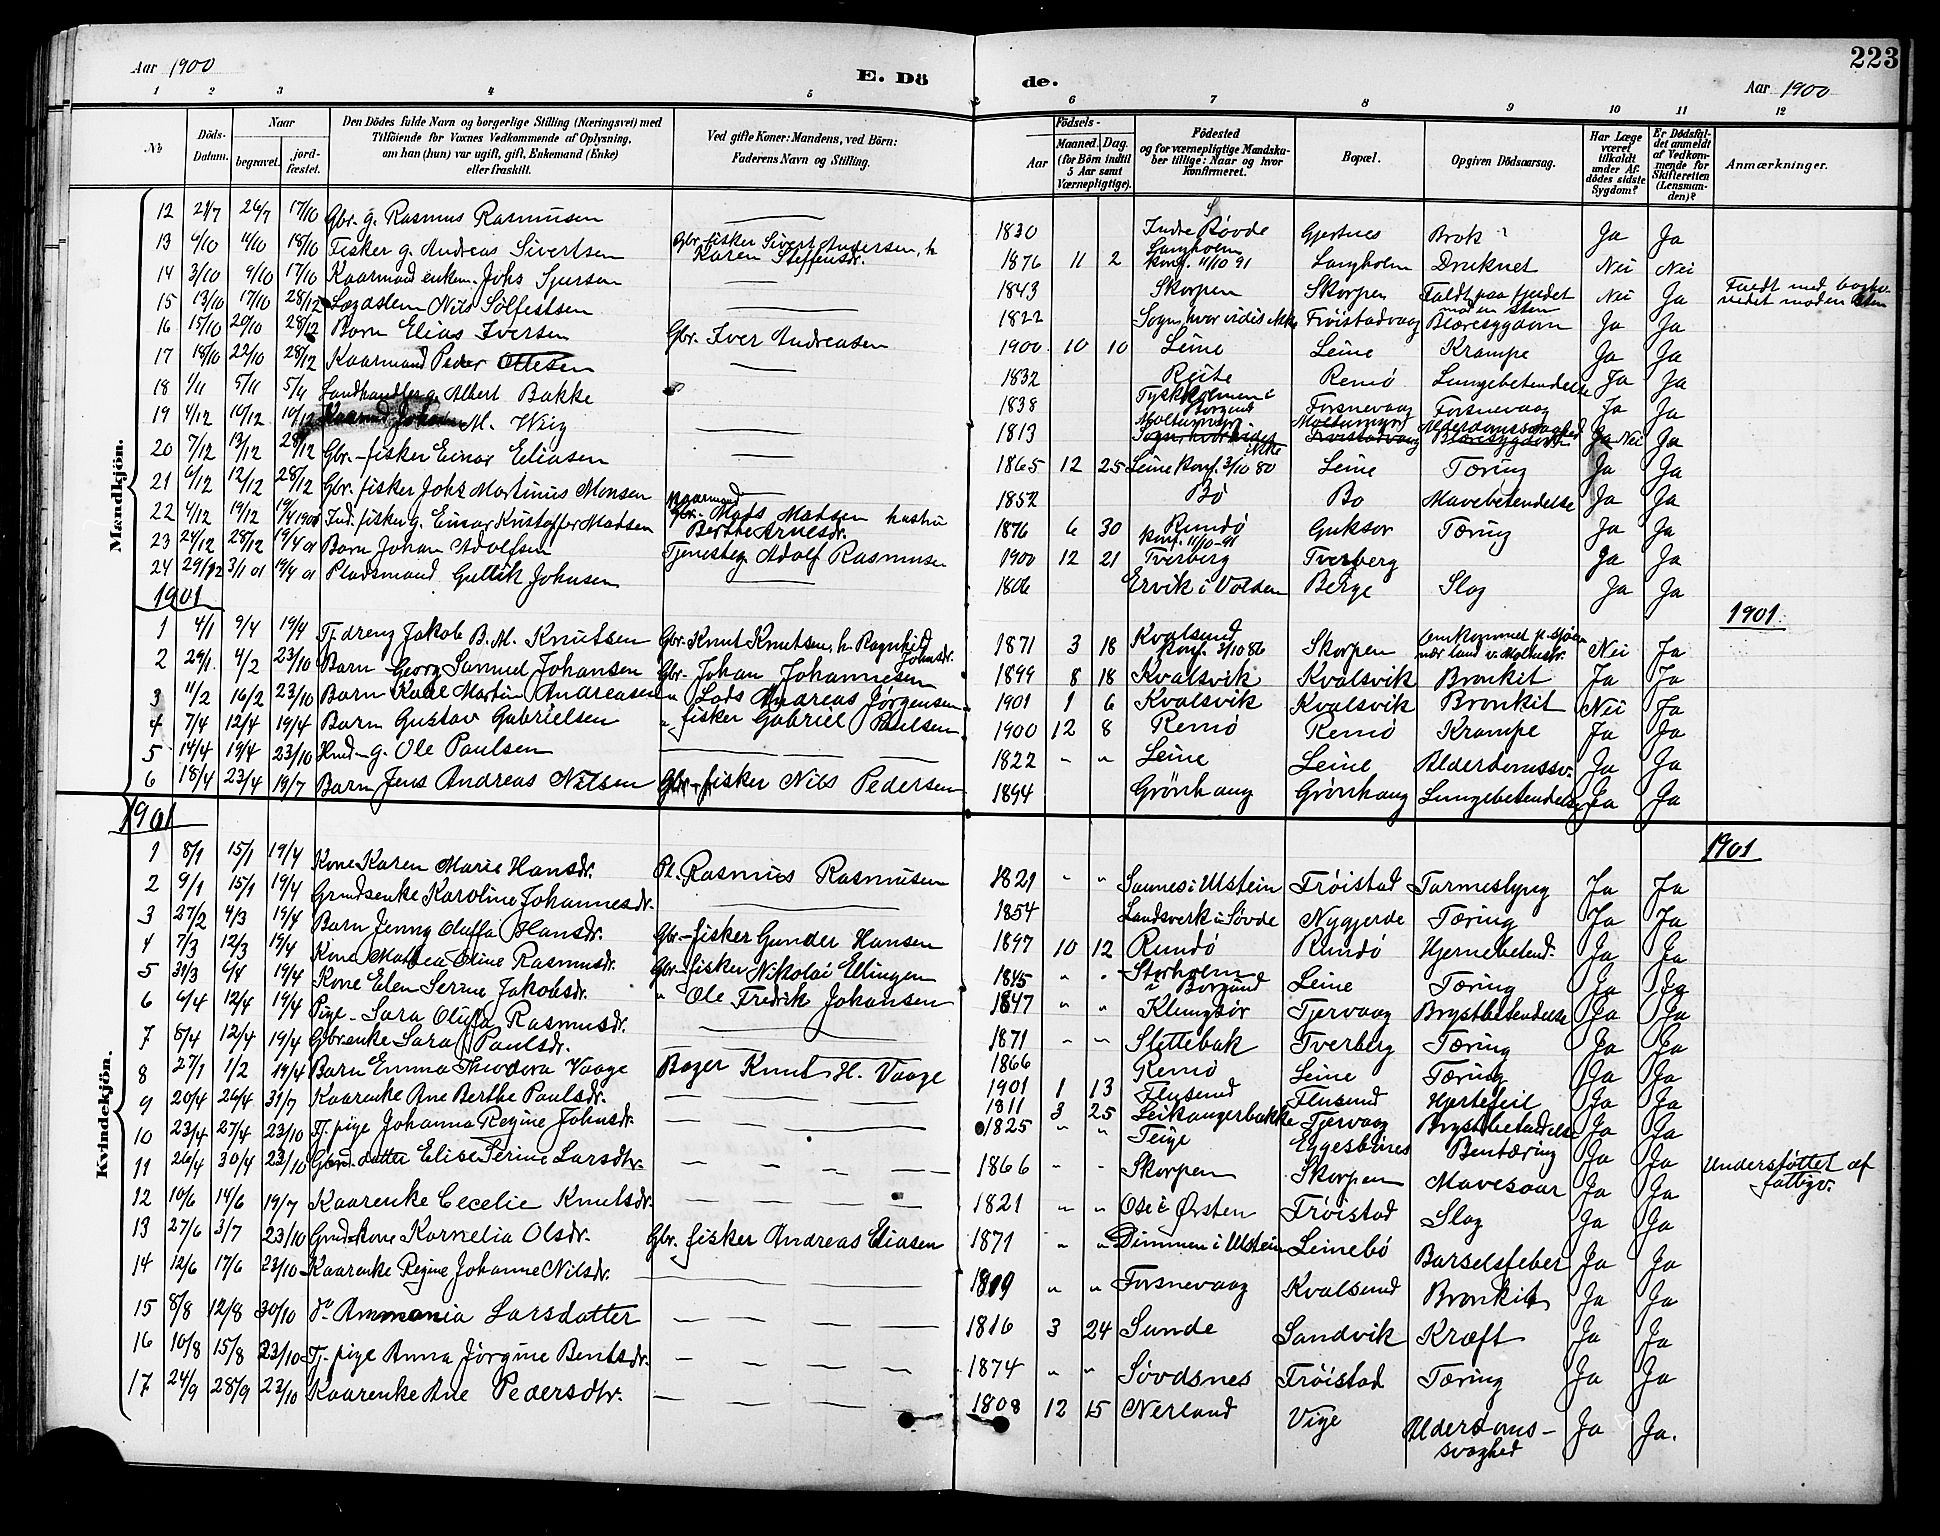 Aar 1900 E. Döde. Aar 1900 223
1 2 3 4 5 6 7 8 9 10 11 12
№ Döds-Datum. Naar begravet. jord-fæstet. Den Dödes fulde Navn og borgerlige Stilling (Næringsvei) med Tilföiende för Voxnes Vedkommende af Oplysning, om han (hun) var ugift, gift, Enkemand (Enke) eller fraskilt. Ved gifte Koner: Mandens, ved Börn: Faderens Navn og Stilling. Födsels- Aar Maaned. Dag. (for Börn indtil 5 Aar samt Værnepligtige). Födested og for værnepligtige Mandskaber tillige: Naar og hvor konfirmeret. Bopæl. Opgiven Dödsaarsag. Har Læge været tilkaldt under Afdödes sidste Sygdom? Er Dödsfaldet anmeldt af Vedkommende for Skifteretten (Lensmanden)? Anmærkninger.
Mandkjön.
12 21/7 26/7 17/10 Gbr. g. Rasmus Rasmusen — 1830 Indre Søvde Gjertnes Brok Ja Ja
13 4/10 11/10 18/10 Fisker g. Andreas Sivertsen Gbr. fisker Sivert Andersen, h Karen Steffensdr. 1876 11 2 Langholm Konf. 11/10 91 Langholm Druknet Nei Nei
14 3/10 9/10 17/10 Kaarmand enkem. Johs Sjurson — 1843 Skorpen Skorpen Faldt paa fjeldet mod en sten Nei Ja
15 13/10 17/10 28/12 Lægdslem Nils Sölfestsen — 1822 Sogn, hvor vides ikke Frøistadvaag Blæresygdom Ja Ja
16 15/10 20/10 28/12 Barn Elias Iversen Gbr. Iver Andreasen 1900 10 10 Leine Leine Krampe Ja Ja
17 18/10 22/10 28/12 Kaarmand Peder Ottesen — 1832 Reite Remö Lungebetendelse Ja Ja
18 1/11 5/11 5/11 Landhandler g. Albert Bakke 1838 Tyskholmen i Borgund Forsnevaag Forsnevaag Ja Ja
19 4/12 10/12 10/12 Kaarmd. Johan M. Weig — 1813 Moltumyr Moltumyr Alderdomssvaghed Ja Nei Ja
20 7/12 13/12 28/12 Gbr.-fisker Einar Eliasen — 1865 12 25 Leine Konf. 3/10 80 Leine Tæring Ja Ja
21 6/12 12/12 28/12 Gbr. fisker Johs Martinus Monsen — 1852 Bø Bø Mavebetendelse Ja Ja
22 4/12 19/12 19/4 1901 Ind. fisker g. Einar Kristoffer Madsen Kaarmand Mads Madsen hustru Berthe Arnesdr. 1876 6 30 Rundö Konf. 11/10-91 Goksør Tæring Ja Ja
23 24/12 28/12 19/4 01 Barn Johan Adolfsen Tjenesteg. Adolf Rasmusen 1900 12 21 Tverberg Tverberg Ja Ja
24 29/12 3/1 01 19/4 01 Pladsmand Gullik Johnsen — 1806 Ervik i Volden Berge Slag Ja Ja
1901 1901
1 4/1 9/4 19/4 Tj. dreng Jakob B. M. Knutsen Gbr. Knut Knutsen, h. Ragnhild Johnsdr. 1871 3 18 Kvalsund Konf. 3/10 86 Skorpen Omkommet p. sjøen nær land Nei Ja
2 29/1 4/2 23/10 Barn Georg Samuel Johansen Gbr. Johan Johannesen 1899 8 18 Kvalsvik Kvalsvik Bronkit Ja Ja
3 11/2 16/2 23/10 Barn Kaare Martin Andreasen " Lods Andreas Jørgensen 1901 1 6 Kvalsvik Kvalsvik Bronkit Nei Ja
4 7/4 12/4 19/4 Barn Gustav Gabrielsen " fisker Gabriel Paulsen 1900 12 8 Remö Remö Krampe Ja Ja
5 14/4 19/4 23/10 Hmd-g. Ole Paulsen — 1822 " " Leine Leine Alderdomssv. Ja Ja
6 18/4 23/4 19/7 Barn Jens Andreas Nilsen Gbr-fisker Nils Pedersen 1894 Grönhaug Grönhaug Lungebetendelse Ja Ja
1901 1901
Kvindekjön.
1 8/1 15/1 19/4 Kone Karen Marie Hansdr. Pl. Rasmus Rasmusen 1821 " " Saunes i Ulstein Frøistad Tarmeslyng Ja Ja
2 9/1 15/1 19/4 Grundsenke Karoline Johannesdr. — 1854 Landsverk i Søvde Nygjerde Tæring Ja Ja
3 27/2 4/3 19/4 Barn Jenny Oluffa Hansdr. Gbr-fisker Gunder Hansen 1897 10 12 Rundö Rundö Hjernebetend. Ja Ja
4 7/3 12/3 19/4 Kone Mathea Oline Rasmusdr. Gbr-fisker Nikolai Ellingen 1845 " " Storholm i Borgund Leine Tæring Ja Ja
5 31/3 6/4 19/4 Kone Elen Serine Jakobsdr. " Ole Fredrik Johansen 1847 " " Klungsör Tjørvaag Brystbetendelse Ja Ja
6 6/4 12/4 19/4 Pige - Sara Oluffa Rasmusdr. — 1871 " " Slettebak Tverberg Tæring Ja Ja
7 8/4 12/4 19/4 Gbr.enke Sara Paulsdr. — 1866 Remö Leine Tæring Ja Ja
8 27/1 1/2 19/4 Barn Emma Theodora Vaage Bager Knut H. Vaage 1901 1 13 Flusund Flusund Hjertefeil Ja Ja
9 20/4 26/4 31/7 Kaarenke Ane Berthe Paulsdr. — 1811 3 25 Leikangerbakke Tjørvaag Brystbetendelse Ja Ja
10 23/4 27/4 23/10 Tj. pige Johanna Regine Johnsdr. — 1825 " " Teige Eggesbönes Bentæring Ja Ja
11 26/4 30/4 23/10 Gbrd. datter Elise Serine Larsdtr. — 1866 " " Skorpen Skorpen Mavesaar Ja Ja Understøttet af fattigv.
12 10/6 14/6 19/7 Kaarenke Cecelie Knutsdr. — 1821 " " Ose i Ørsten Frøistad Slag Ja Ja
13 27/6 3/7 23/10 Grmd-kone Kornelia Olsdr. Gbr. fisker Andreas Eliasen 1871 " " Dimmen i Ulstein Leinebö Barselsfeber Ja Ja
14 12/6 17/6 23/10 Kaarenke Regine Johanne Nilsdr. — 1819 " " Forsnevaag Kvalsund Bronkit Ja Ja
15 8/8 12/8 30/10 do Ammonia Larsdatter — 1816 3 24 Sunde Sandvik Kræft Ja Ja
16 10/8 15/8 23/10 Tj. pige Anna Jörgine Bentsdr. — 1874 " " Søvdsnes Frøistad Tæring Ja Ja
17 24/9 28/9 23/10 Kaarenke Ane Pedersdtr. — 1808 12 15 Nerland Vige Alderdoms-svaghed Ja Ja.